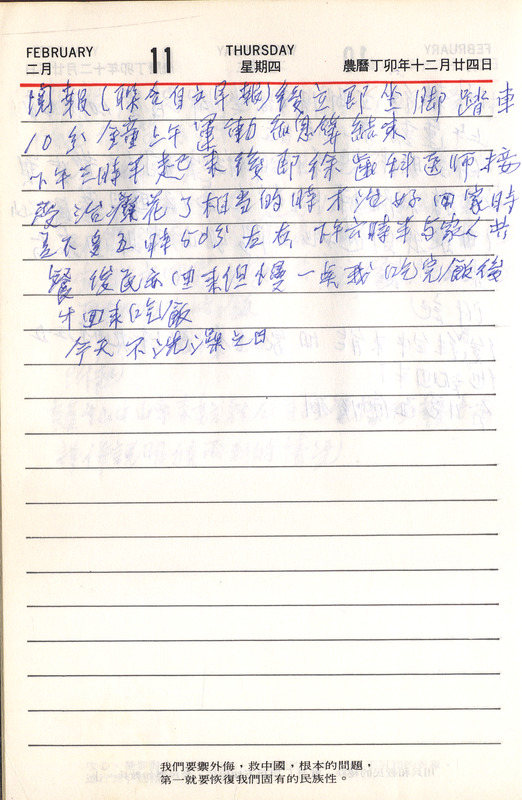 FEBRUARY 11 THURSDAY
二月 星期四 農曆丁卯年十二月廿四日
閱報(聯合自立早報)後立即坐脚踏車
10分鐘上午運動 結束
下午三時半起來後即徐齒科医師接
受治療花了相当的時才治好回家時
是不多五時50分左右 下午六時半与家人共
餐 俊民亦回來但慢一点我吃完飯後
才回來吃飯
今天不洗澡之日
我們要禦外侮,救中國,根本的問題,
第一就要恢復我們固有的民族性。